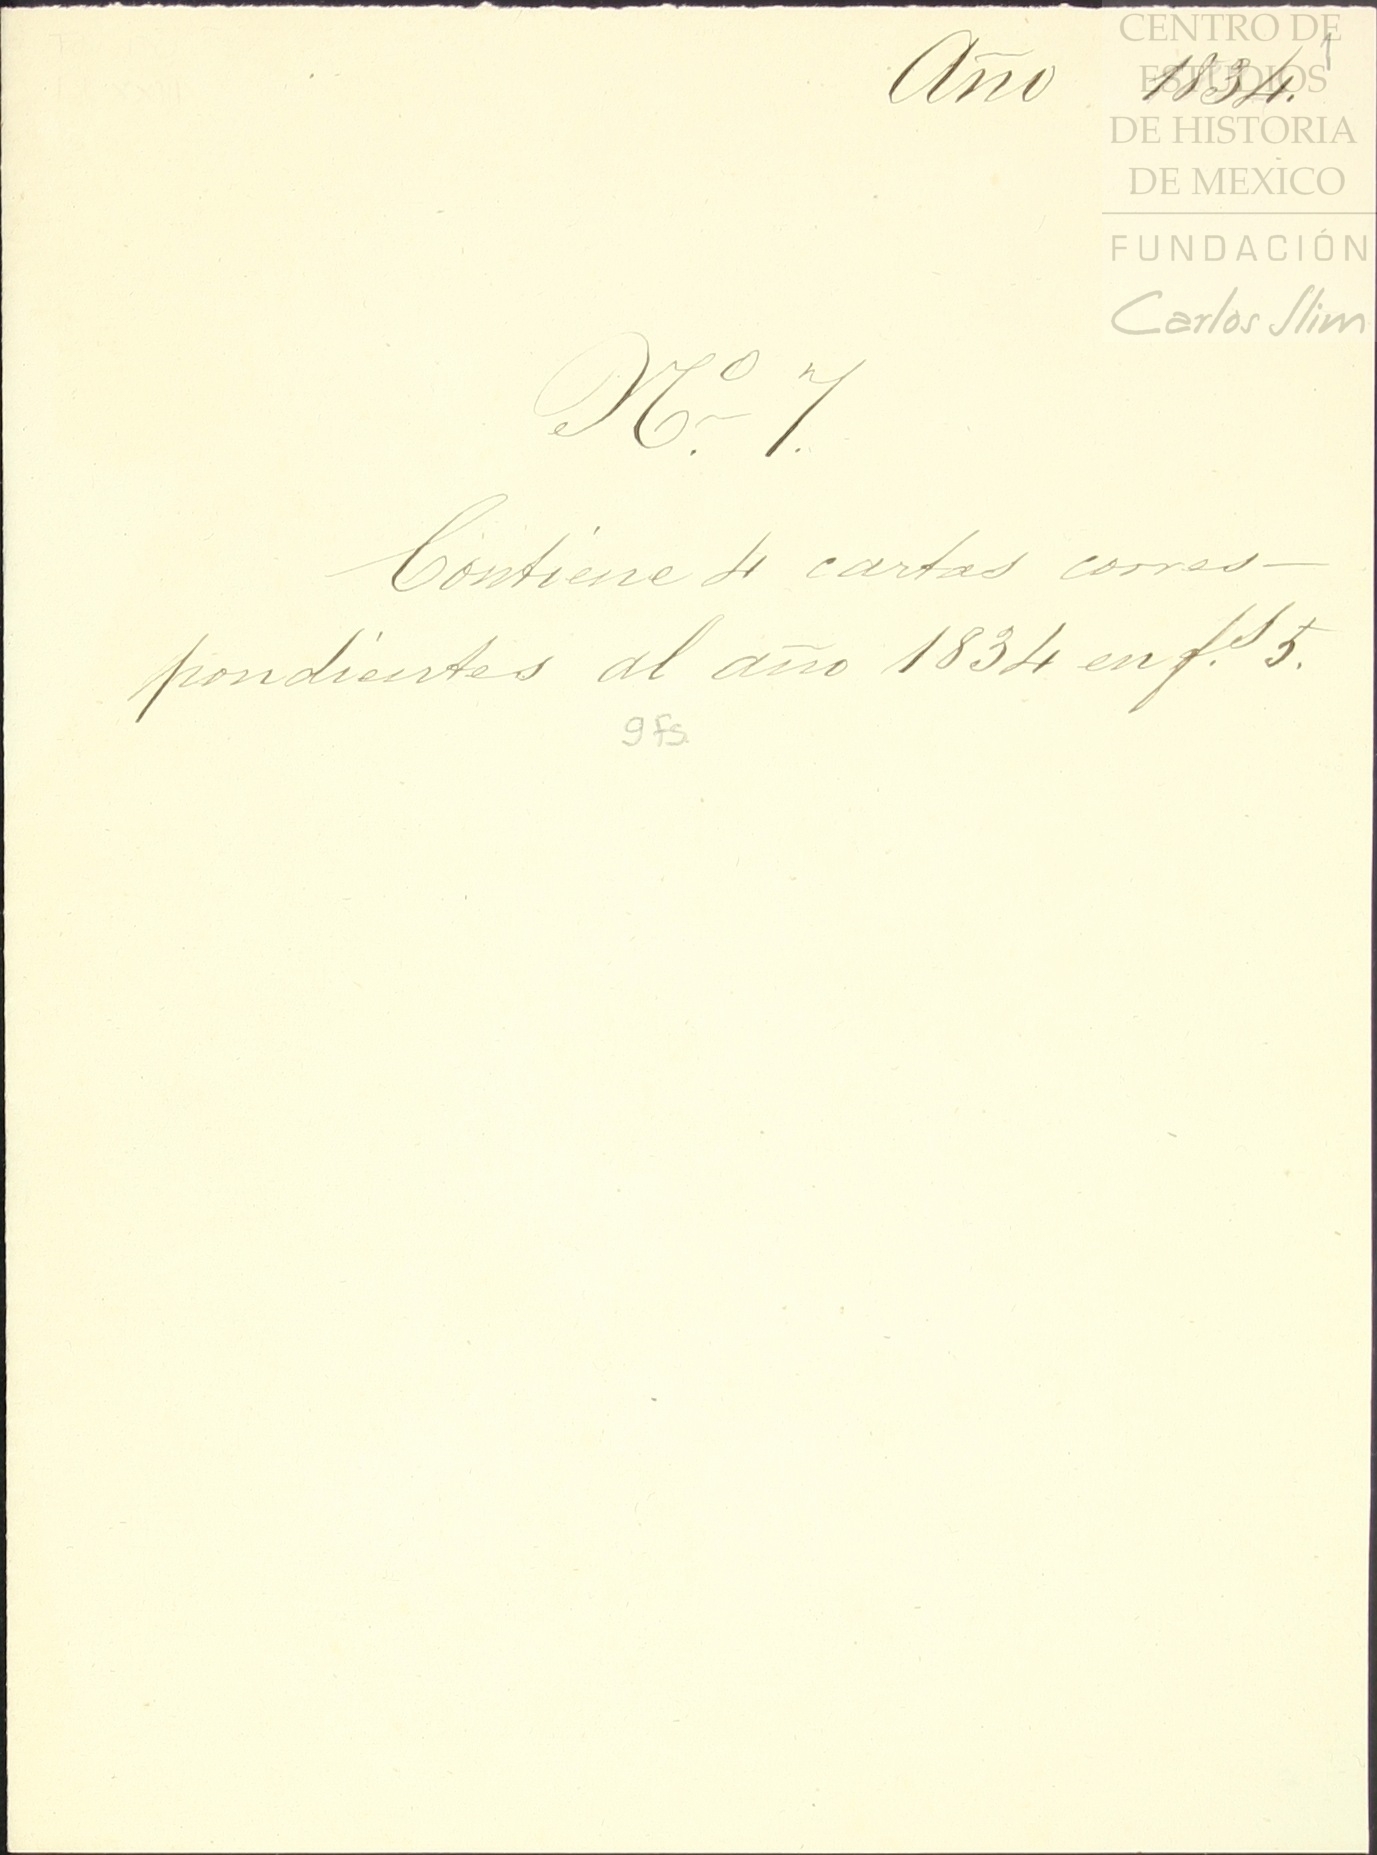 Año 1834.
1
CENTRO DE
ESTUDIOS
DE HISTORIA
DE MEXICO
FUNDACIÓN
Carlos Slim
Nº. 7.
Contiene 4 cartas corres-
pondientes al año 1834 en f.s 5.
9 fs.